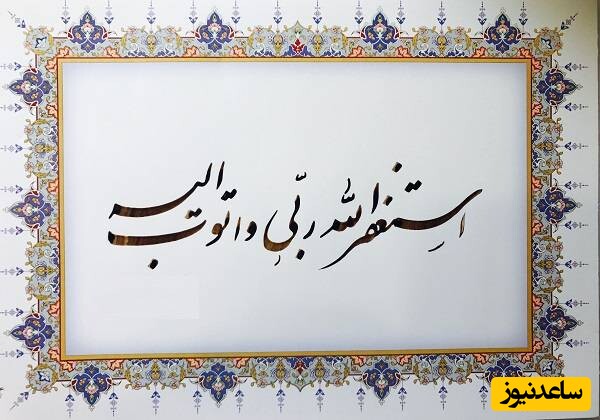 استغفر الله ربّي و اتوب اليه
ساعدنیوز